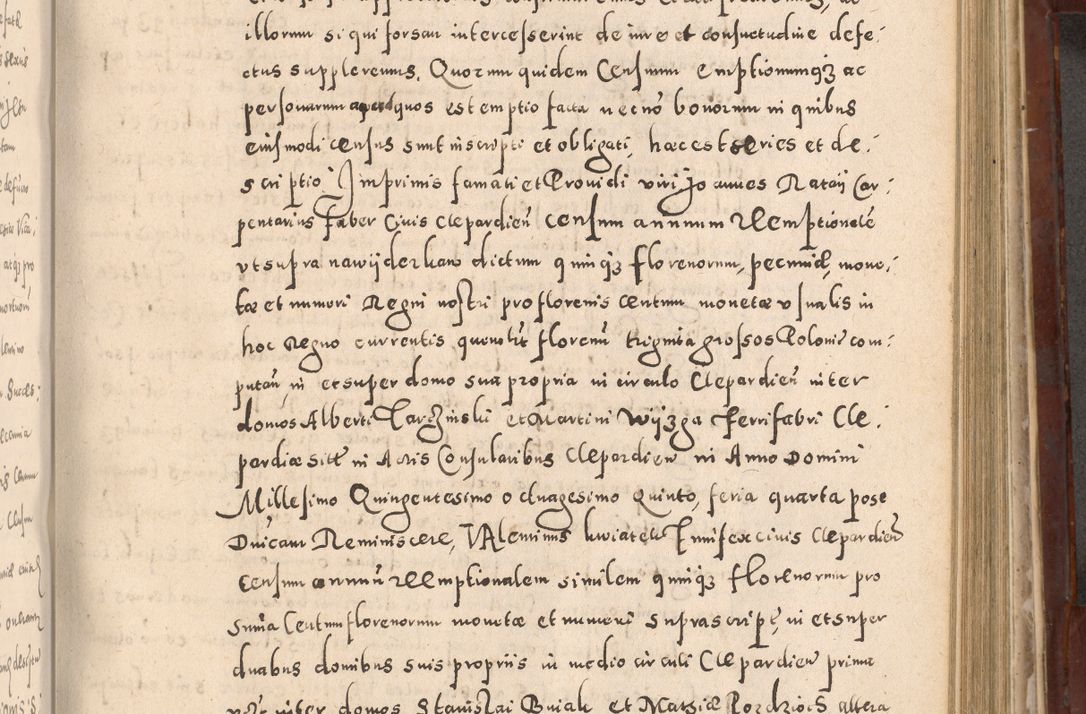 illorum si qui forsan intercesserint de iure et consuetudine defe-
ctus suppleremus. Quorum quidem Censuum emptionumq3 ac
personarum apud quos est emptio facta necnõ bonorum in quibus
eiusmodi census sunt inscripti et obligati, hæc est series et de-
scriptio. Imprimis famati et Providi viri Joannes Rataij Car-
pentarius Faber Civis Clepardieñ censum annuum reemptionalẽ
ut supra nawijderkaw dictum quinq3 florenorum, pecuniæ, mone-
tæ et numeri Regni nostri pro florenis centum monetæ usualis in
hoc Regno currentis quemlit florenũ triginta grossos Polonic com-
putañ, in et super domo sua propria in circulo Clepardieñ inter
domos Alberti et Martini Wijzga Ferrifabri Cle-
pardiæ sitt in Actis Consularibus Clepardieñ in Anno Domini
Millesimo Quingentesimo octuagesimo Quinto, feria quarta post
Dnicam Reminiscere, Valentinus kwiatek civis Clepardieñ
censum annuũ reemptionalem similem quinq3 florenorum pro
suma Centum florenorum monetæ et numeri suprascript, in et super
duabus domibus suis propriis in medio circuli Clepardieñ prima
inter domos Stanislai et Mathiæ altera